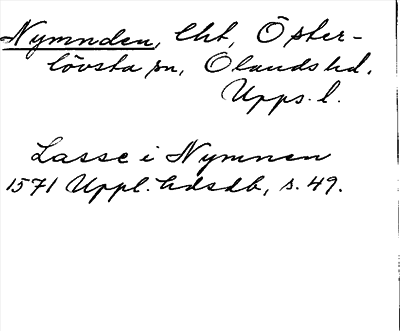 Nymnden, lht, Öster-
lövsta sn, Olands hd.
Upps. l.
Lasse i Nymnen
1571 Uppl. hdsdb, s. 49.